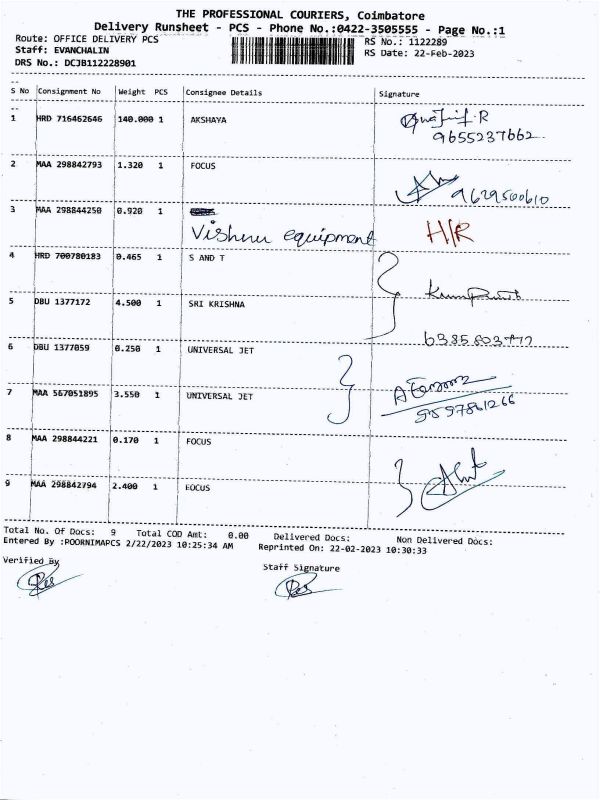 THE PROFESSIONAL COURIERS, Coimbatore
Delivery Runsheet - PCS - Phone No.:0422-3505555 - Page No.:1
Route: OFFICE DELIVERY PCS RS No.: 1122289
Staff: EVANCHALIN RS Date: 22-Feb-2023
DRS No.: DCJB112228901
S No Consignment No Weight PCS Consignee Details Signature
1 HRD 716462646 140.000 1 AKSHAYA
9655237662
2 MAA 298842793 1.320 1 FOCUS
9629500610
3 MAA 298844250 0.920 1
Vishnu equipment H/R
4 HRD 700780183 0.465 1 S AND T
5 DBU 1377172 4.500 1 SRI KRISHNA
6 DBU 1377059 0.250 1 UNIVERSAL JET
7 MAA 567051895 3.550 1 UNIVERSAL JET
8 MAA 298844221 0.170 1 FOCUS
9 MAA 298842794 2.400 1 FOCUS
Total No. Of Docs: 9 Total COD Amt: 0.00 Delivered Docs: Non Delivered Docs:
Entered By :POORNIMAPCS 2/22/2023 10:25:34 AM Reprinted On: 22-02-2023 10:30:33
Verified By Staff Signature